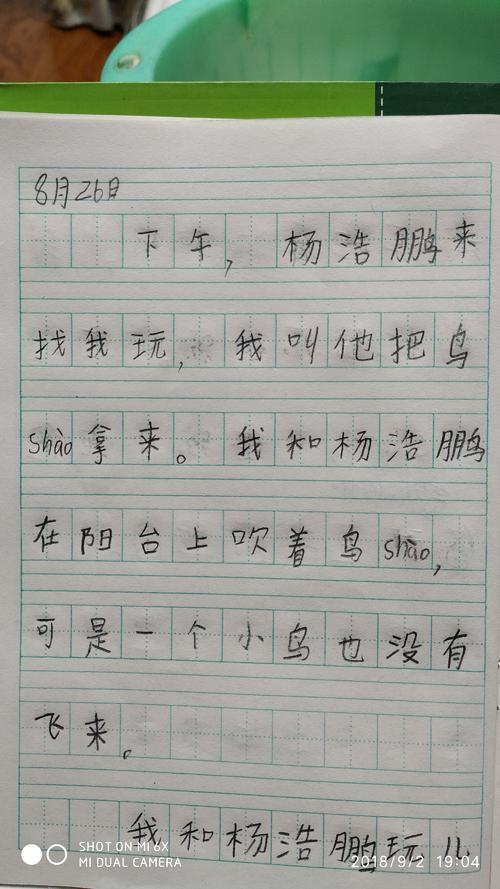 8月26日
下午，杨浩鹏来
找我玩，我叫他把鸟
shào拿来。我和杨浩鹏
在阳台上吹着鸟shào，
可是一个小鸟也没有
飞来。
我和杨浩鹏玩儿
SHOT ON MI 6X
MI DUAL CAMERA
2018/9/2 19:04